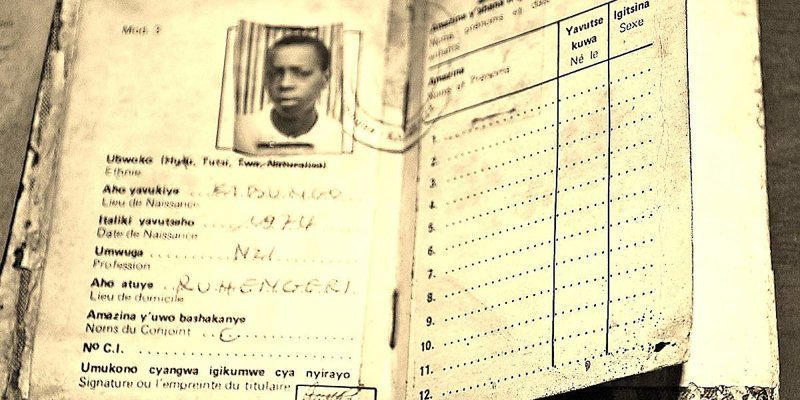 Mod. 2
Ubwoko (Hutu, Tutsi, Twa, Naturalisé)
Ethnie
Aho yavukiye
Lieu de Naissance
Italiki yavutseho 1974
Date de Naissance
Umwuga
Profession
Aho atuye RUHENGERI
Lieu de domicile
Amazina y'uwo bashakanye
Noms du Conjoint
No C.I.
Umukono cyangwa igikumwe cya nyirayo
Signature ou l'empreinte du titulaire
Amazina
Noms et Prénoms
Yavutse kuwa
Né le
Igitsina
Sexe
1.
2.
3.
4.
5.
6.
7.
8.
9.
10.
11.
12.